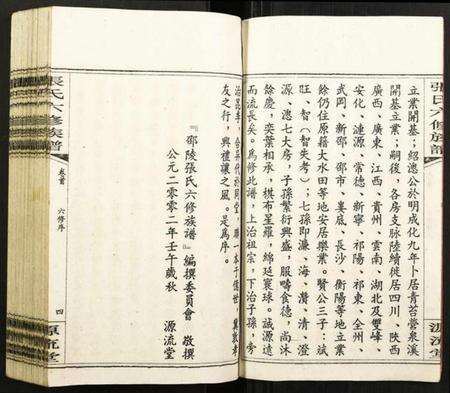 張氏六修族譜
源流堂
立業開基；紹遠公於明成化九年卜居青苔營泉溪
開基立業；嗣後，各房支脉陸續徙居四川、陝西
廣西、廣東、江西、貴州、雲南、湖北及雙峰、
安化、漣源、常德、新寧、祁陽、祁東、全州、
武岡、新邵、邵市、婁底、長沙、衡陽等地立業
餘仍住原籍大水田等地安居樂業。賢公三子：斌
旺、智（智失考）；七孫即濂、海、潛、清、澄
源、濾七大房，子孫繁衍興盛，服疇食德，尚沐
餘慶，奕葉相承，棋布星羅，綿延寰球。誠源遠
而流長矣。爲修此譜，上治祖宗，下治子孫，旁
治昆季，合異代於同堂，聯一本于億世，冀敦孝
友之行，興禮讓之風。是爲序。
『邵陵張氏六修族譜』編撰委員會 敬撰
公元二零零二年壬午歲秋 源流堂
張氏六修族譜
卷首
六修序
四
源流堂